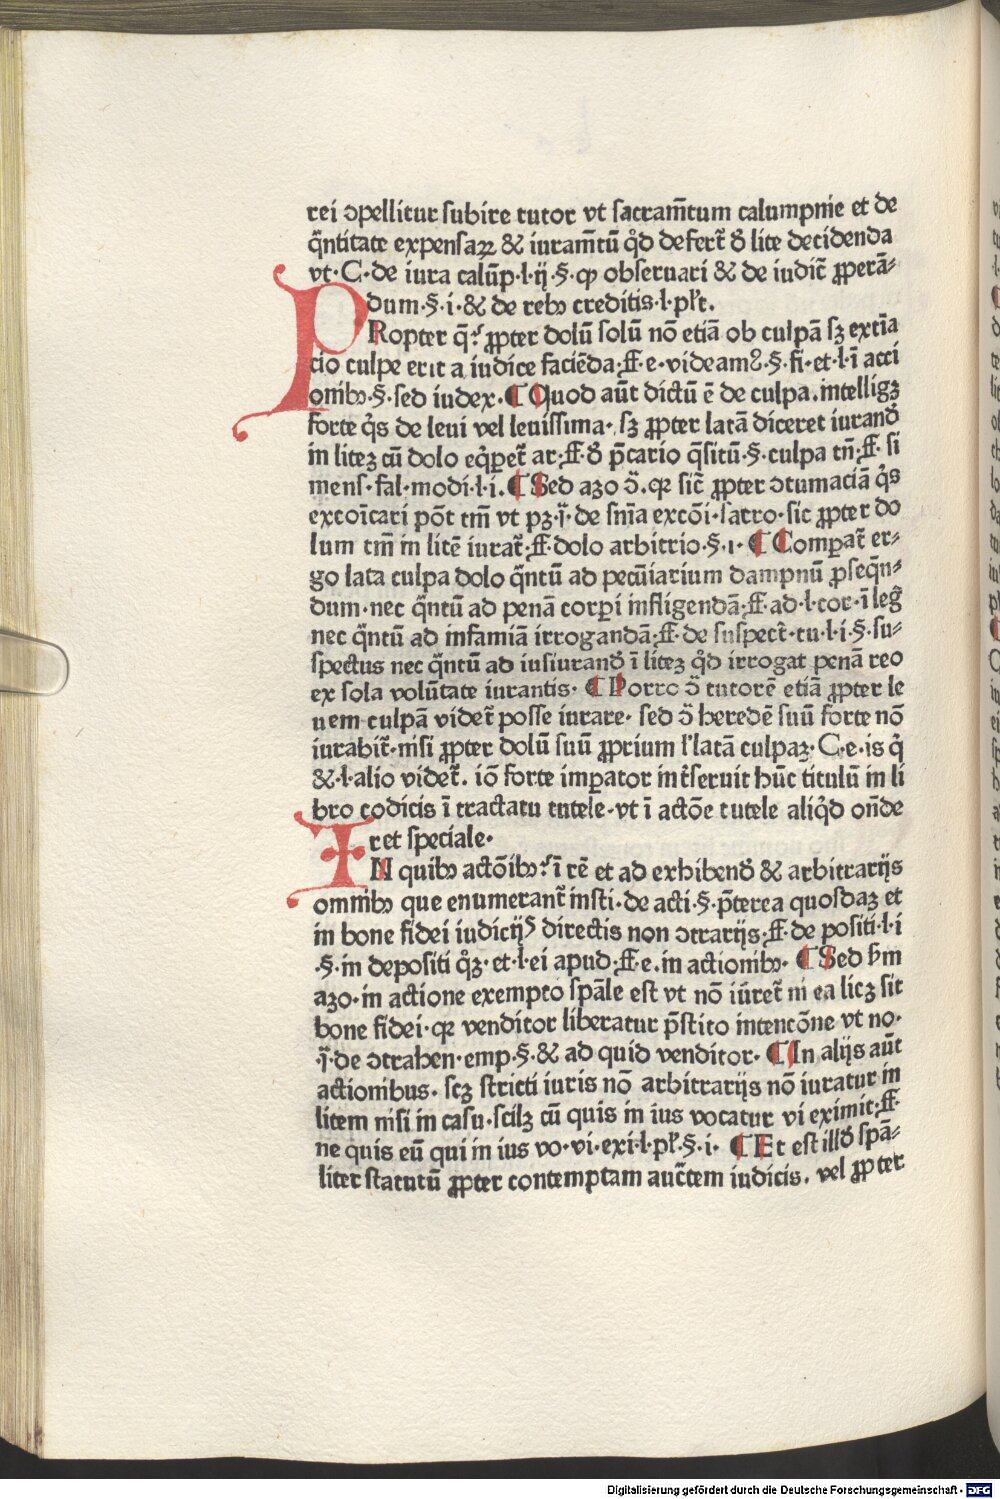 rei ɔpellitur subire tutor vt sacram̄tum calumpnie et de
q̄ntitate expensaꝝ & iuram̄tū qd̉ defert̄ ð lite decidenda
vt·C·de iura calūp·l·ij·§·ꝙ obseruari & de iudic̄ ꝓperā⸗
dum·§·i·& de rebꝰ creditis·l·pl̄r.
PRopter q̄·? ꝓpter dolū solū nō etiā ob culpā sꝫ extīa
cio culpe erit a iudice faciēda·ff·e·videamꝰ·§·fi·et·l·ī acci
omībꝰ·§·sed iudex·¶ Quod aūt dictū ē de culpa.intelligꝫ
forte qỉs de leui vel leuissima· sꝫ ꝓpter latā diceret iurand̄
in litēꝫ cū dolo eq̉peꞇ̄ ar·ff·ð p̄cario q̄situ̅·§·culpa tn̄·ff· si
mens·fal·modi·l·i.¶ Sed azo ɔ̄.qꝛ sic̄ ꝓpter ɔtumaciā q̉s
excoīcari pōt tm̄ vt pꝫ·q̄·de sn̄ia excōi·sacro·sic ꝓpter do
lum tm̄ in litē iurat̄·ff·dolo arbitrio·§·1·¶ Comꝑat̄ er⸗
go lata culpa dolo q̄ntū ad pecūiarium dampnū ꝓseqn̄⸗
dum·nec q̄ntū ad penā corꝑi infligendā·ff·ad·l·cor·ī leg̉
nec q̄ntū ad infamiā irrogandā·ff·de suspect̄·tu·l·i·§·su⸗
spectus nec q̄ntū ad iusiurand̄ ī litēꝫ qd̉ irrogat penā reo
ex sola volūtate iurantis· ¶ Porro ɔ̄ tutorē etiā ꝓpter le
uem culpā videt̄ posse iurare· sed ɔ̄ heredē suū forte nō
iurabit̄·nisi ꝓpter dolū suū ꝓprium l̉ latā culpaꝫ·C·e·is q̉
&·l·alio videt̄. iō forte imꝑator int̄seruit hūc titulū in li
bro codicis ī tractatu tutele·vt ī actōe tutele aliqd̉ on̄de
ret speciale·
IN quibꝰ actōibꝰ·? ī rē et ad exhibend̄ & arbitrarijs
omnībꝰ que enumerant̄ insti·de acti·§·p̄terea quosdaꝫ et
in bone fidei iudicijs directis non ɔtrarijs·ff·de positi·l·i
·§·in depositi qꝫ̉·et·l·ei apud·ff·e.in actionibꝰ· ¶ Sed ẜm
azo·in actione exempto spāle est vt nō iūret̄ ni ea licꝫ sit
bone fidei·qꝛ venditor liberatur p̄stito intencōne vt no·
·q̄·de ɔtrahen·emp·§·& ad quid venditor· ¶ In alijs aūt
actionibus· scꝫ stricti iuris nō arbitrarijs nō iuratur in
litem nisi in casu·scilꝫ cū quis in ius vocatur vi eximit·ff·
ne quis eū qui in ius vo·vi·exi·l·pl̄·§·i· ¶ Et est illd̄ spā⸗
liter statutū ꝓpter contemptam auc̄tem iudicis. vel ꝓpter
Digitalisierung gefördert durch die Deutsche Forschungsgemeinschaft - DFG